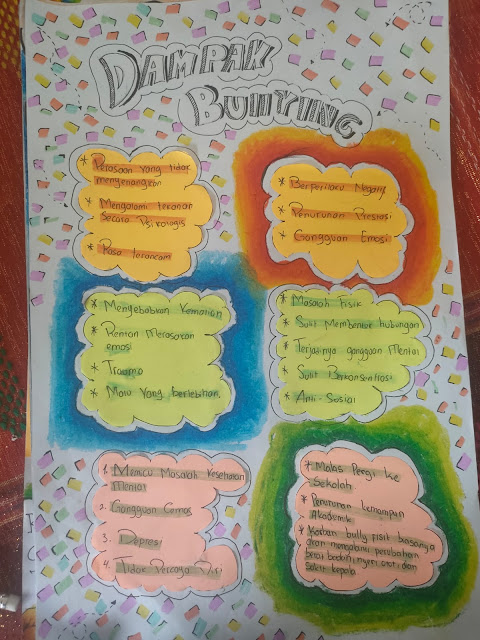 DAMPAK
BULLYING
* Perasaan yang tidak
menyenangkan
* Mengalami tekanan
Secara Psikologis
* Rasa terancam
* Berperilaku Negatif
* Penurunan Prestasi
* Gangguan Emosi
* Menyebabkan Kematian
* Rentan Merasakan
emosi
* Trauma
* Malu Yang berlebihan.
* Masalah Fisik
* Sulit Membentuk hubungan
* Terjadinya gangguan Mental
* Sulit Berkonsentrasi
* Anti-Sosial
1. Memicu Masalah Kesehatan
Mental
2. Gangguan Cemas
3. Depresi
4. Tidak Percaya Diri
* Malas Pergi ke
Sekolah
* Penurunan kemampuan
Akademik
* Korban bully fisik biasanya
akan mengalami perubahan
berat badan, nyeri otot dan
Sakit kepala